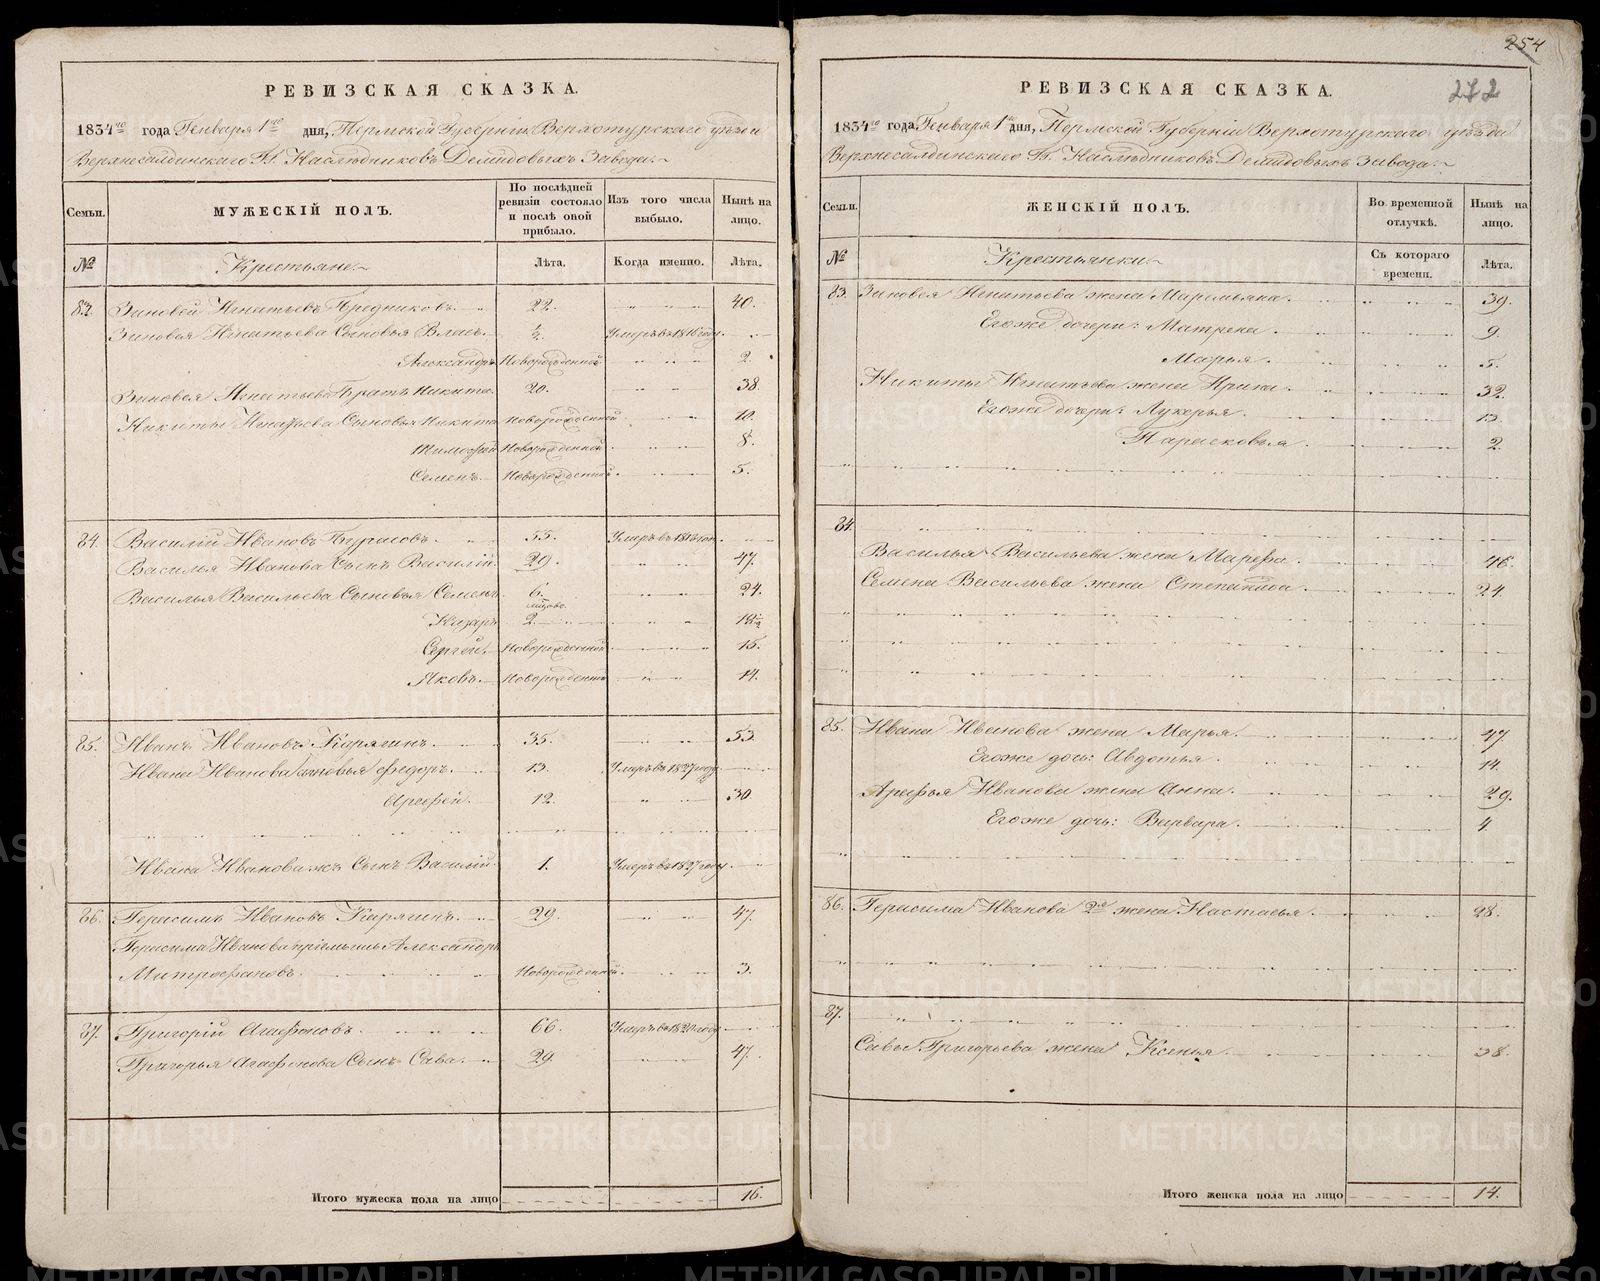 РЕВИЗСКАЯ СКАЗКА.
1834го года Генваря 1го дня, Пермской Губернiи Верхотурскаго уѣзда
Верхнесалдинскаго Гг. Наслѣдниковъ Демидовыхъ Завода.
Семьи.
МУЖЕСКIЙ ПОЛЪ.
По послѣдней ревизiи состояло и послѣ оной прибыло.
Изъ того числа выбыло.
Нынѣ на лицо.
№
Крестьяне.
Лѣта.
Когда именно.
Лѣта.
83. Зиновей Игнатьевъ 22. 40.
Зиновея Игнатьева Сыновья Власъ. ½ Умеръ в 1816 году.
Александръ Новорожденной 2.
Зиновея Игнатьева Братъ Никита. 20. 38.
Никиты Игнатьева Сыновья Никита Новорожденной 10.
Тимофей Новорожденной 8.
Семенъ. Новорожденной 5.
84. Василiй Ивановъ 55. Умеръ в 1818 год.
Василья Иванова Сынъ Василiй. 29. 47.
Василья Васильева Сыновья Семенъ 6. 24.
мѣсяцовъ
2. 18½
Сергей. Новорожденной 15.
Яковъ. Новорожденной 14.
85. Иванъ Ивановъ Карягинъ. 35. 53.
Ивана Иванова Сыновья Федоръ. 13. Умеръ в 1827 году
Арефей. 12. 30.
Ивана Иванова жъ Сынъ Василiй. 1. Умеръ в 1827 году.
86. Герасимъ Ивановъ Карягинъ. 29. 47.
Герасима Иванова прiемышъ Александръ
Митрофановъ. Новорожденной. 3.
87. Григорiй Агафоновъ. 66. Умеръ в 1820 году
Григорья Агафонова Сынъ Сава. 29. 47.
Итого мужеска пола на лицо 16.
254
272
РЕВИЗСКАЯ СКАЗКА.
1834го года Генваря 1го дня, Пермской Губернiи Верхотурскаго уѣзда
Верхнесалдинскаго Гг. Наслѣдниковъ Демидовыхъ Завода.
Семьи.
ЖЕНСКIЙ ПОЛЪ.
Во временной отлучкѣ.
Нынѣ на лицо.
№
Крестьянки.
Съ котораго времени.
Лѣта.
83. Зиновея Игнатьева жена Маремьяна. 39.
Егоже дочери: Матрена. 9.
Марья. 5.
Никиты Игнатьева жена Ирина. 32.
Егоже дочери: Лукерья. 13.
Парасковья. 2.
84.
Василья Васильева жена Марефа. 46.
Семена Васильева жена Степанида. 24.
85. Ивана Иванова жена Марья. 47.
Егоже дочь: Авдотья. 14.
Арефья Иванова жена Анна. 29.
Егоже дочь: Варвара. 4.
86. Герасима Иванова 2я жена Настасья. 28.
87.
Савы Григорьева жена Ксенья. 38.
Итого женска пола на лицо 14.
METRIKI.GASO-URAL.RU